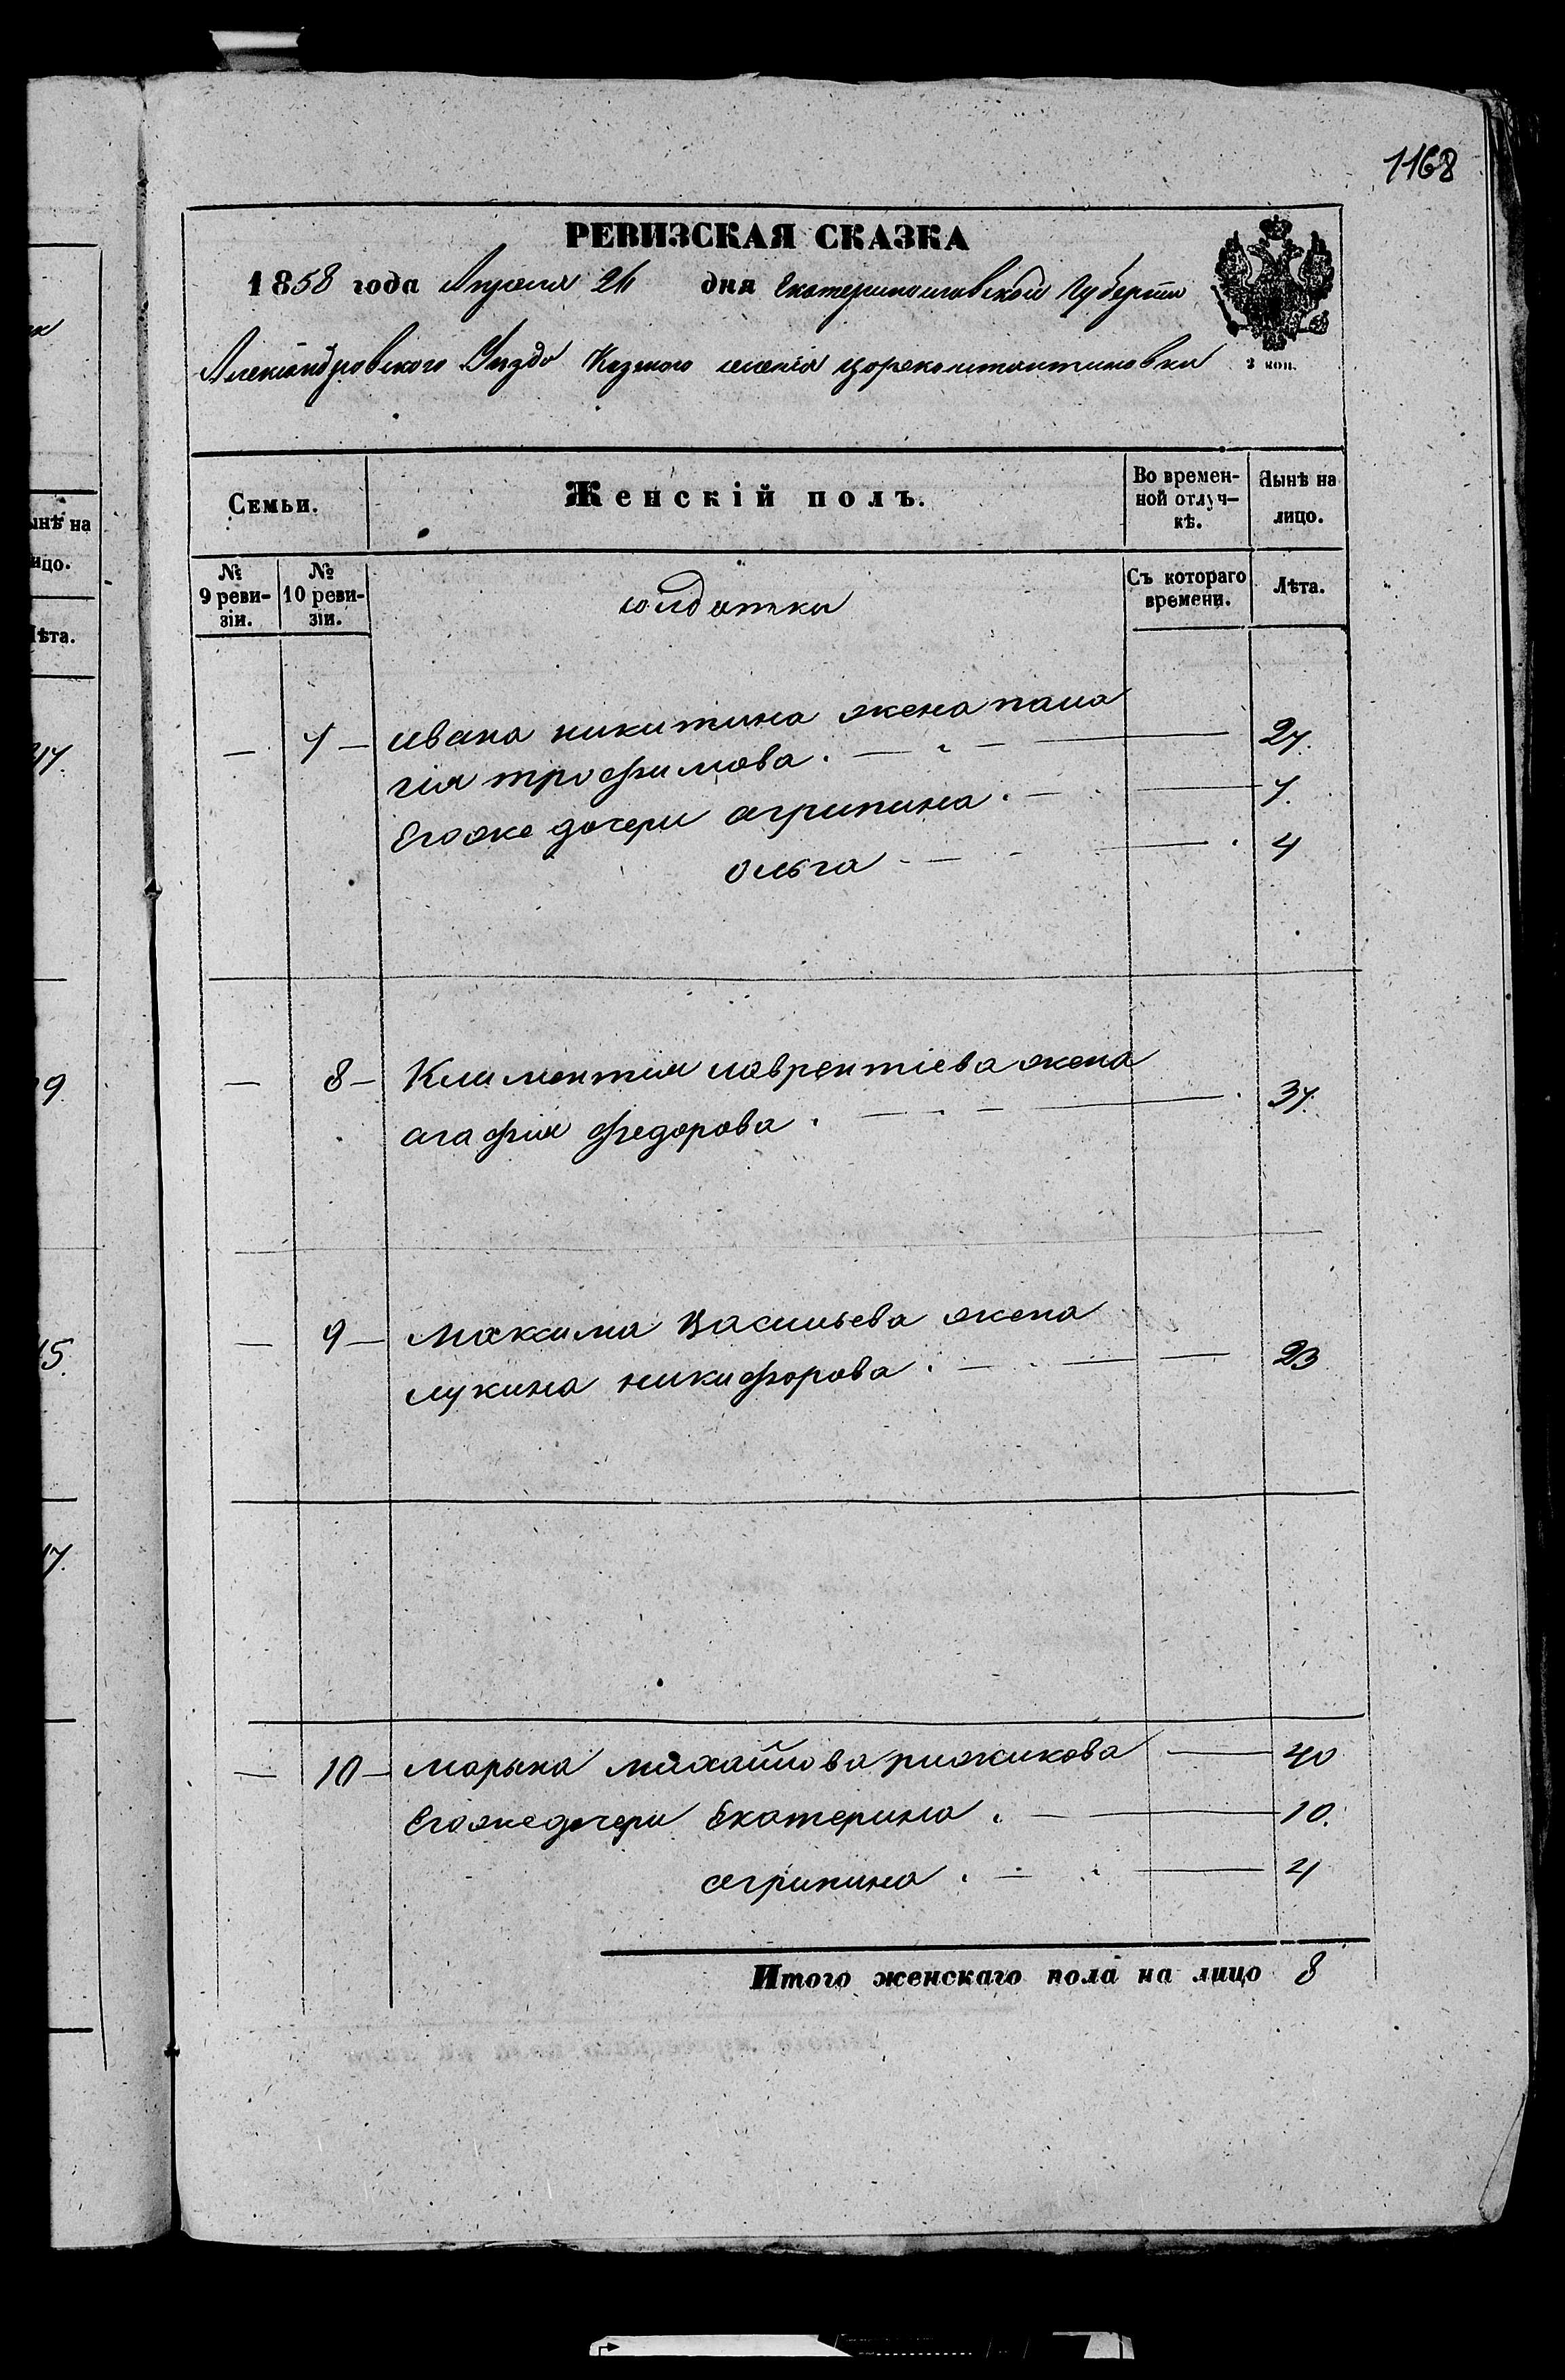 1168
РЕВИЗСКАЯ СКАЗКА
1858 года Апреля 26 дня Екатеринославской Губернiи
Александровского Уезда Казеного селенiя Цареконстантиновки
2 коп.
Семьи. Женскiй полъ. Во времен- Нынѣ на
ной отлуч- лицо.
кѣ.
№ № Съ котораго Лѣта.
9 реви- 10 реви- времени.
зiи. зiи.
солдатки
— 7 — ивана никитина жена пала
гiя трофимова. — 27.
Егоже дочери агрипина. — 7.
ольга — 4
— 8 — Климентия лаврентiева жена
агафия федорова. — 37.
— 9 — максима Васильева жена
лукина никифорова. — 23
— 10 — марына михайлова рижикова — 40
Егоже дочери Екатерина. — 10.
агрипина. — 4
Итого женскаго пола на лицо 8
ынѣ на
ицо.
ѣта.
47.
9
15.
17.